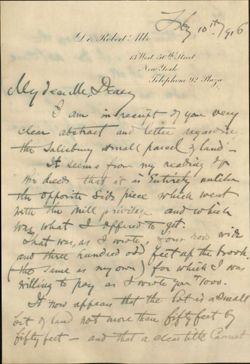 July 10th / 1916
Dr. Robert Abbe
13 West 50th Street
New York
Telephone 92 Plaza
My dear Mr. Deasy
I am in receipt of your very
clear abstract and letter regarding
the Salisbury small parcel of land.
It seems from my reading of
the deeds that it is Entirely unlike
the opposite side piece which went
with the mill privilege and which
was what I offered to get.
That was, as I wrote, four rods wide
and three hundred odd feet up the brook
(the same as my own) for which I was
willing to pay as I wrote you 1000.
It now appears that the lot is a small
bit of land not more than fifty feet by
fifty feet — and that a clear title cannot